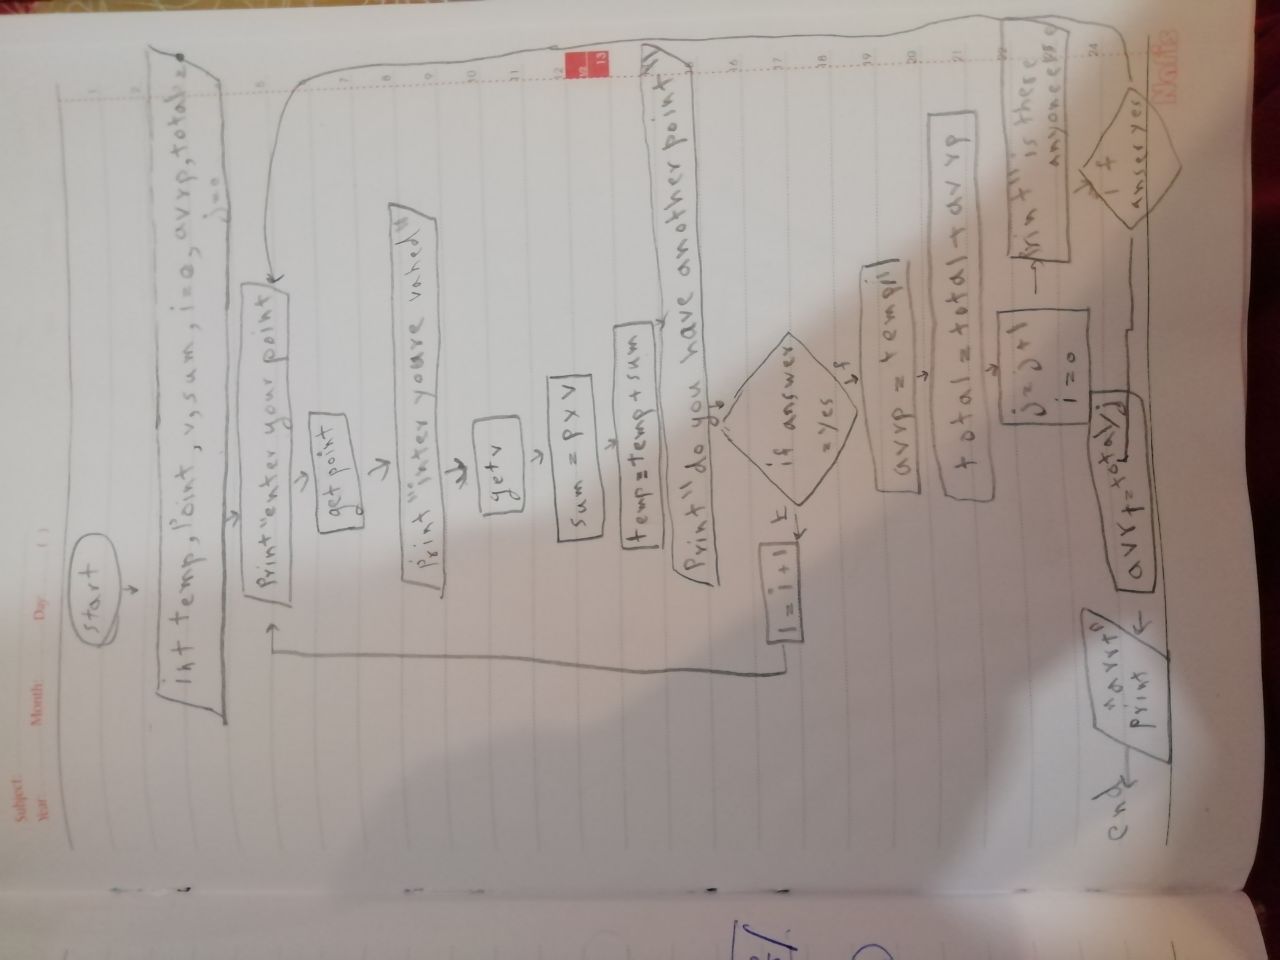 Subject:
Year: Month: Day: ( )
start
int temp, Point, v, sum, i=0, avrp, total=0
j=0
Print"enter your point"
get point
Print"inter youre vahed"
get v
sum = p x v
temp=temp+sum
Print"do you have another point"
if answer
=yes
t
i=i+1
f
avrp = temp/i
total=total+avrp
j=j+1
i=0
Print"is there
anyoneelse
if
anser yes
avrt=total/j
print
"avrt"
end
1
2
6
7
8
9
10
11
12
13
15
16
17
18
19
20
21
22
24